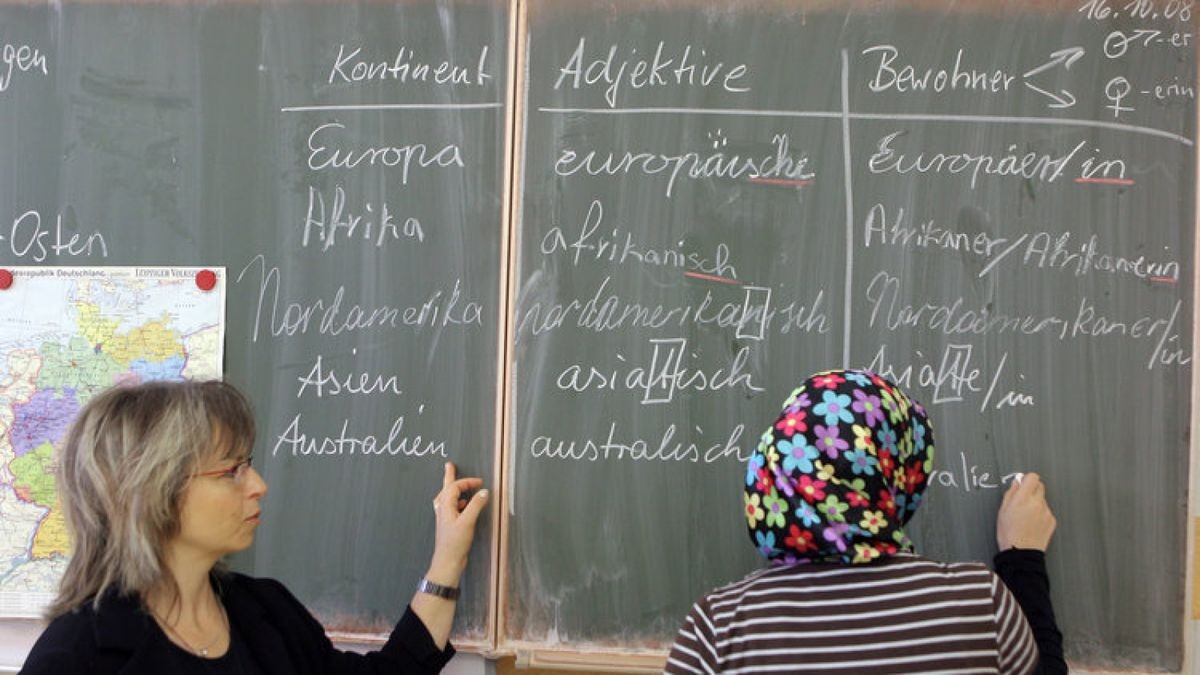 16.10.08
gen Kontinent Adjektive Bewohner ♂ -er
♀ -erin
Europa europäische Europäer/in
Afrika afrikanisch Afrikaner/Afrikanerin
Osten
Bundesrepublik Deutschland LEIPZIGER VOLKSZEITUNG
Nordamerika nordamerikanisch Nordamerikaner/in
Asien asiatisch Asiate/in
Australien australisch ralier